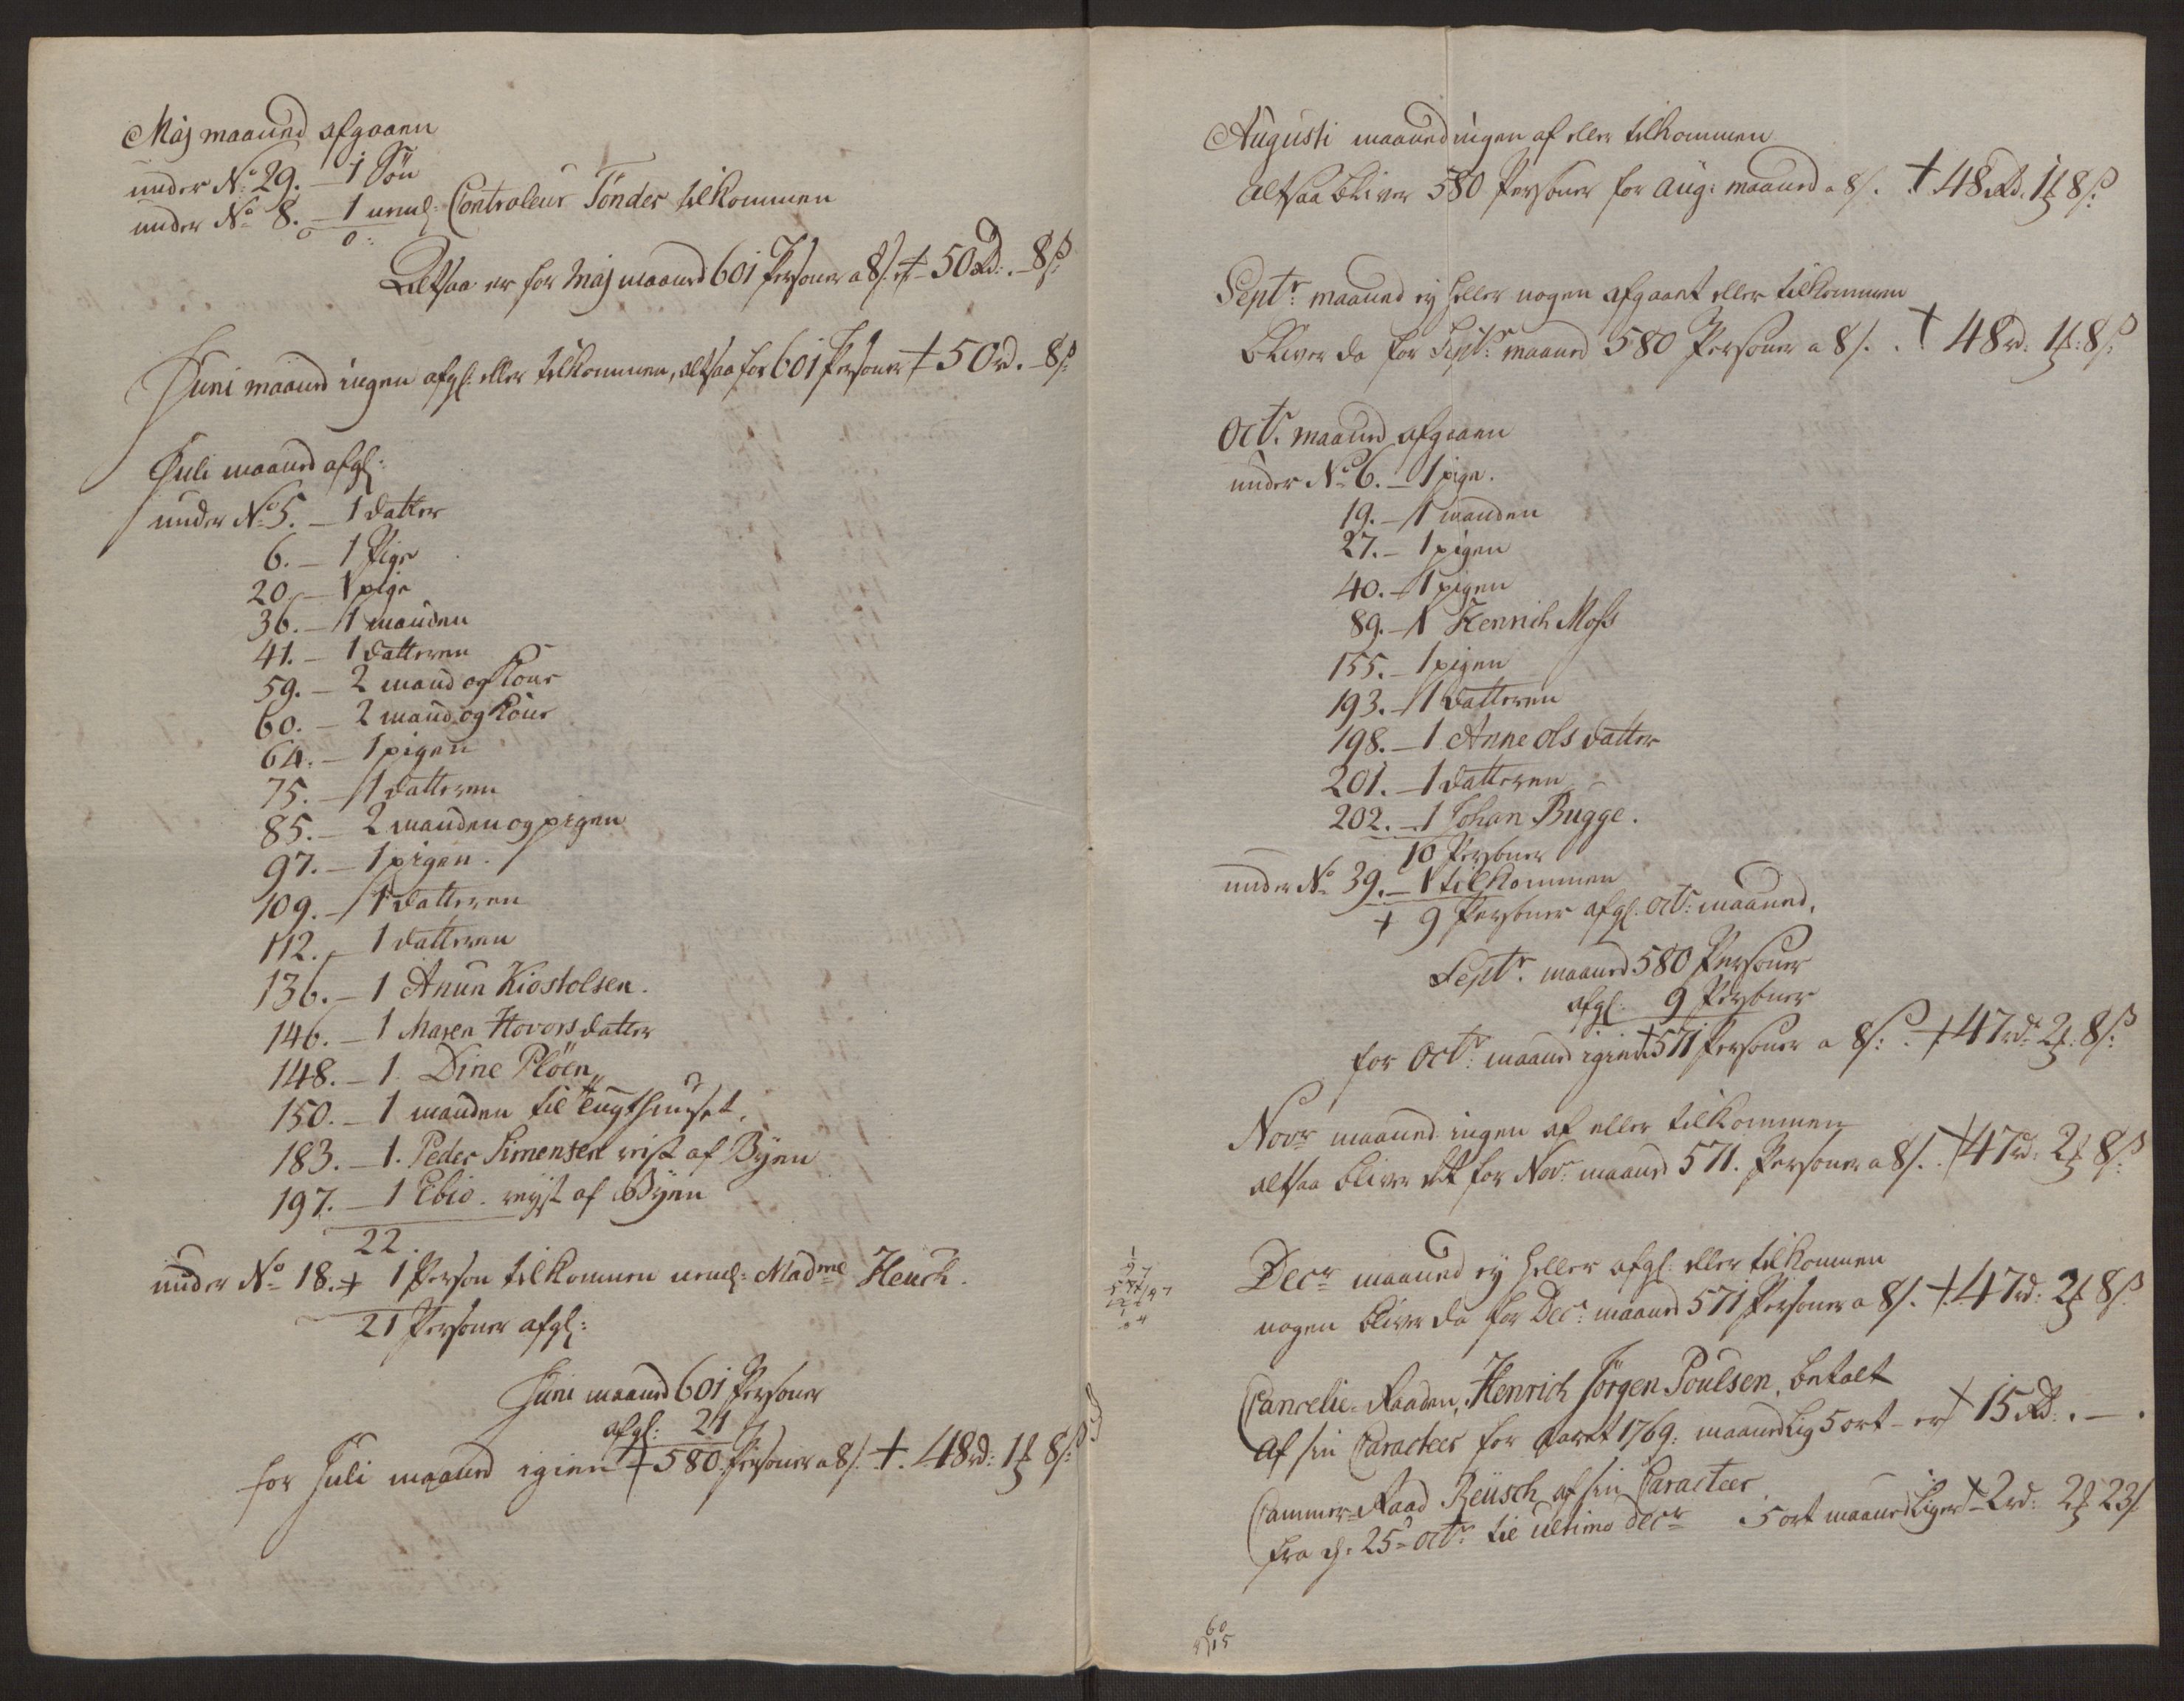 Maj maaned afgaaen
under No 29. — 1 Søn
under No 8. — 1 neml: Controleur Tønder tilkommen
0 0:
Altsaa er for Maj maaned 601 Personer a 8 s. er 50 Rd: . — 8 s:
Juni maaned ingen afgl: eller tilkommen, altsaa for 601 Personer 50 rd. — 8 s
Juli maaned afgl:
under No 5. — 1 datter
6. — 1 Pige
20. — 1 pige
36. — 1 manden
41. — 1 datteren
59. — 2 mand og Kone
60. — 2 mand og Kone
64. — 1 pigen
75. — 1 datteren
85. — 2 manden og pigen
97. — 1 pigen.
109. — 1 datteren
112. — 1 datteren
136. — 1 Anun Kiostolsen.
146. — 1 Maren Hovorsdatter
148. — 1. Dine Pløen
150. — 1 manden til Tugthuuset.
183. — 1. Peder Simensen reist af Byen
197. — 1 Ebio. reyst af Byen
22
under No 18. + 1 Person tilkommen neml: Madme Heuch.
21 Personer afgl:
Juni maaned 601 Personer
afgl: 21
for Juli maaned igien 580. Personer a 8 s. 48 rd: 1 ₰ 8 s:
Augusti maaned ingen af eller tilkommen
altsaa bliver 580 Personer for Aug: maaned a 8 s. 48 Rd. 1 ₰ 8 s:
Septr: maaned ey heller nogen afgaaet eller tilkommen
bliver da for Septr: maaned 580 Personer a 8 s. 48 rd: 1 ₰: 8 s:
Octr. maaned afgaaen
under No 6. — 1 pige.
19. — 1 manden
27. — 1 pigen
40. — 1 pigen
89. — 1 Henrich Moss
155. — 1 pigen
193. — 1 datteren
198. — 1 Anne Olsdatter
201. — 1 datteren
202. — 1 Johan Bugge.
10 Personer
under No 39. — 1 tilkommen
+ 9 Personer afgl: Octr: maaned.
Septr. maaned 580 Personer
afgl: 9 Personer
for Octr: maaned igien 571 Personer a 8 s: 47 rd: 2 ₰. 8 s:
Novr maaned ingen af eller tilkommen
altsaa bliver det for Novr: maaned 571. Personer a 8 s. 47 rd: 2 ₰ 8 s:
Decr maaned ey heller afgl: eller tilkommen
nogen bliver da for Decr: maaned 571 Personer a 8 s. 47 rd: 2 ₰ 8 s.
Cancelie-Raaden, Henrich Jørgen Poulsen, betalt
af sin Caracteer for Aaret 1769: maanedlig 5 ort — er 15 Rd: . — .
Cammer-Raad Reusch af sin Caracteer
fra d: 25de Octr: til ultimo Decr 5 ort maanedlig er 2 rd: 2 ₰ 23 s
60
4)15